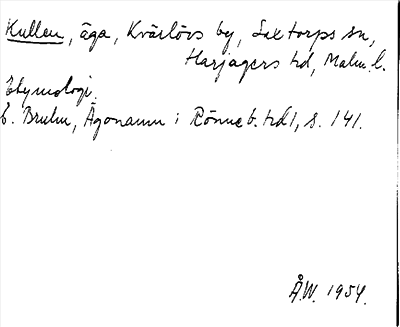 Kullen, äga, Kvärlövs by, Saxtorps sn,
Harjagers hd, Malm. l.
Etymologi.
E. Bruhn, Ägonamn i Rönneb. hd 1, s. 141.
Å.W. 1954.